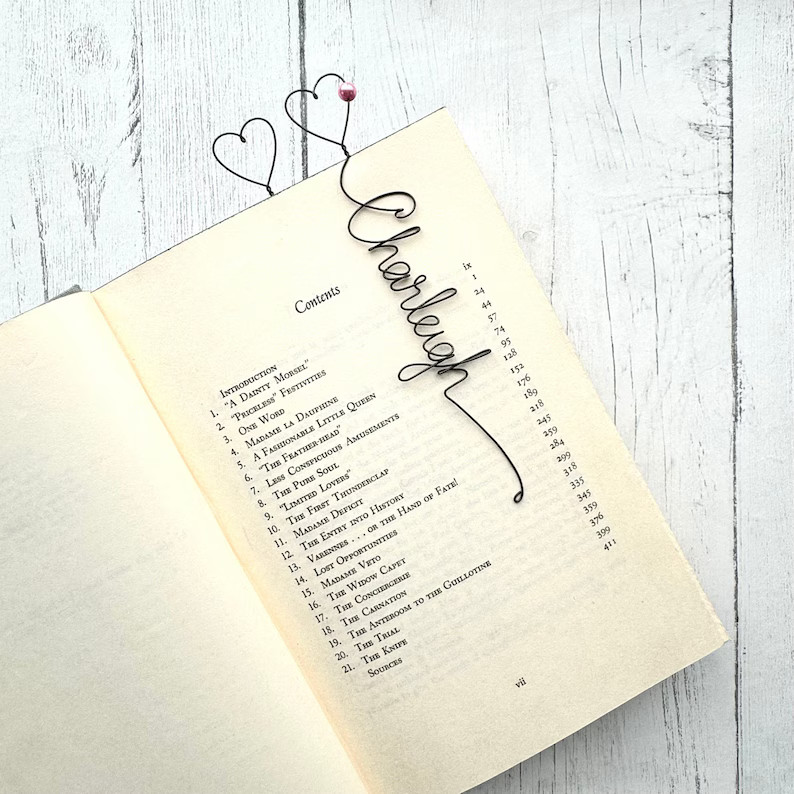 Charleigh
Contents
Introduction ix
1. "A Dainty Morsel" 1
2. "Priceless" Festivities 24
3. One Word 44
4. Madame la Dauphine 57
5. A Fashionable Little Queen 74
6. "The Feather-head" 95
7. Less Conspicuous Amusements 128
8. The Pure Soul 152
9. "Limited Lovers" 176
10. The First Thunderclap 189
11. Madame Deficit 218
12. The Entry into History 245
13. Varennes . . . or the Hand of Fate! 259
14. Lost Opportunities 284
15. Madame Veto 299
16. The Widow Capet 318
17. The Conciergerie 335
18. The Carnation 345
19. The Anteroom to the Guillotine 359
20. The Trial 376
21. The Knife 399
Sources 411
vii